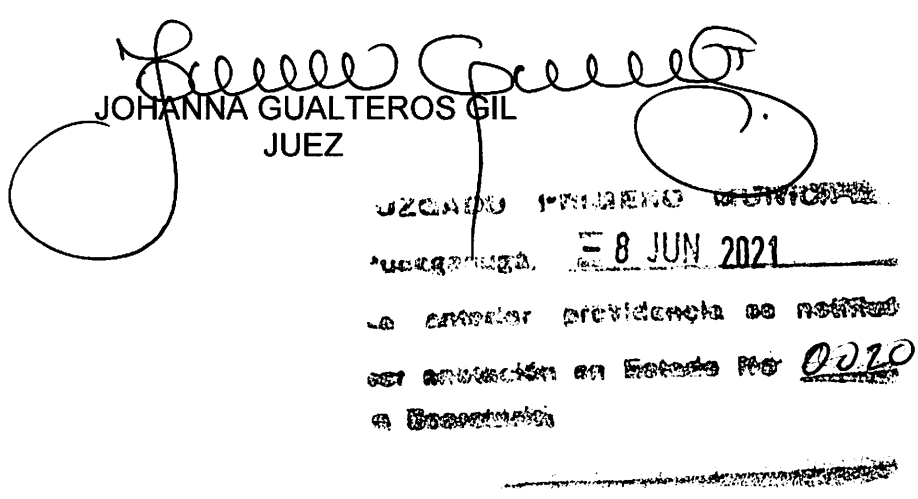 JOHANNA GUALTEROS GIL
JUEZ
JUZGADO PRIMERO MUNICIPAL
8 JUN 2021
La anterior providencia se notificó
por anotación en Estado No 0020